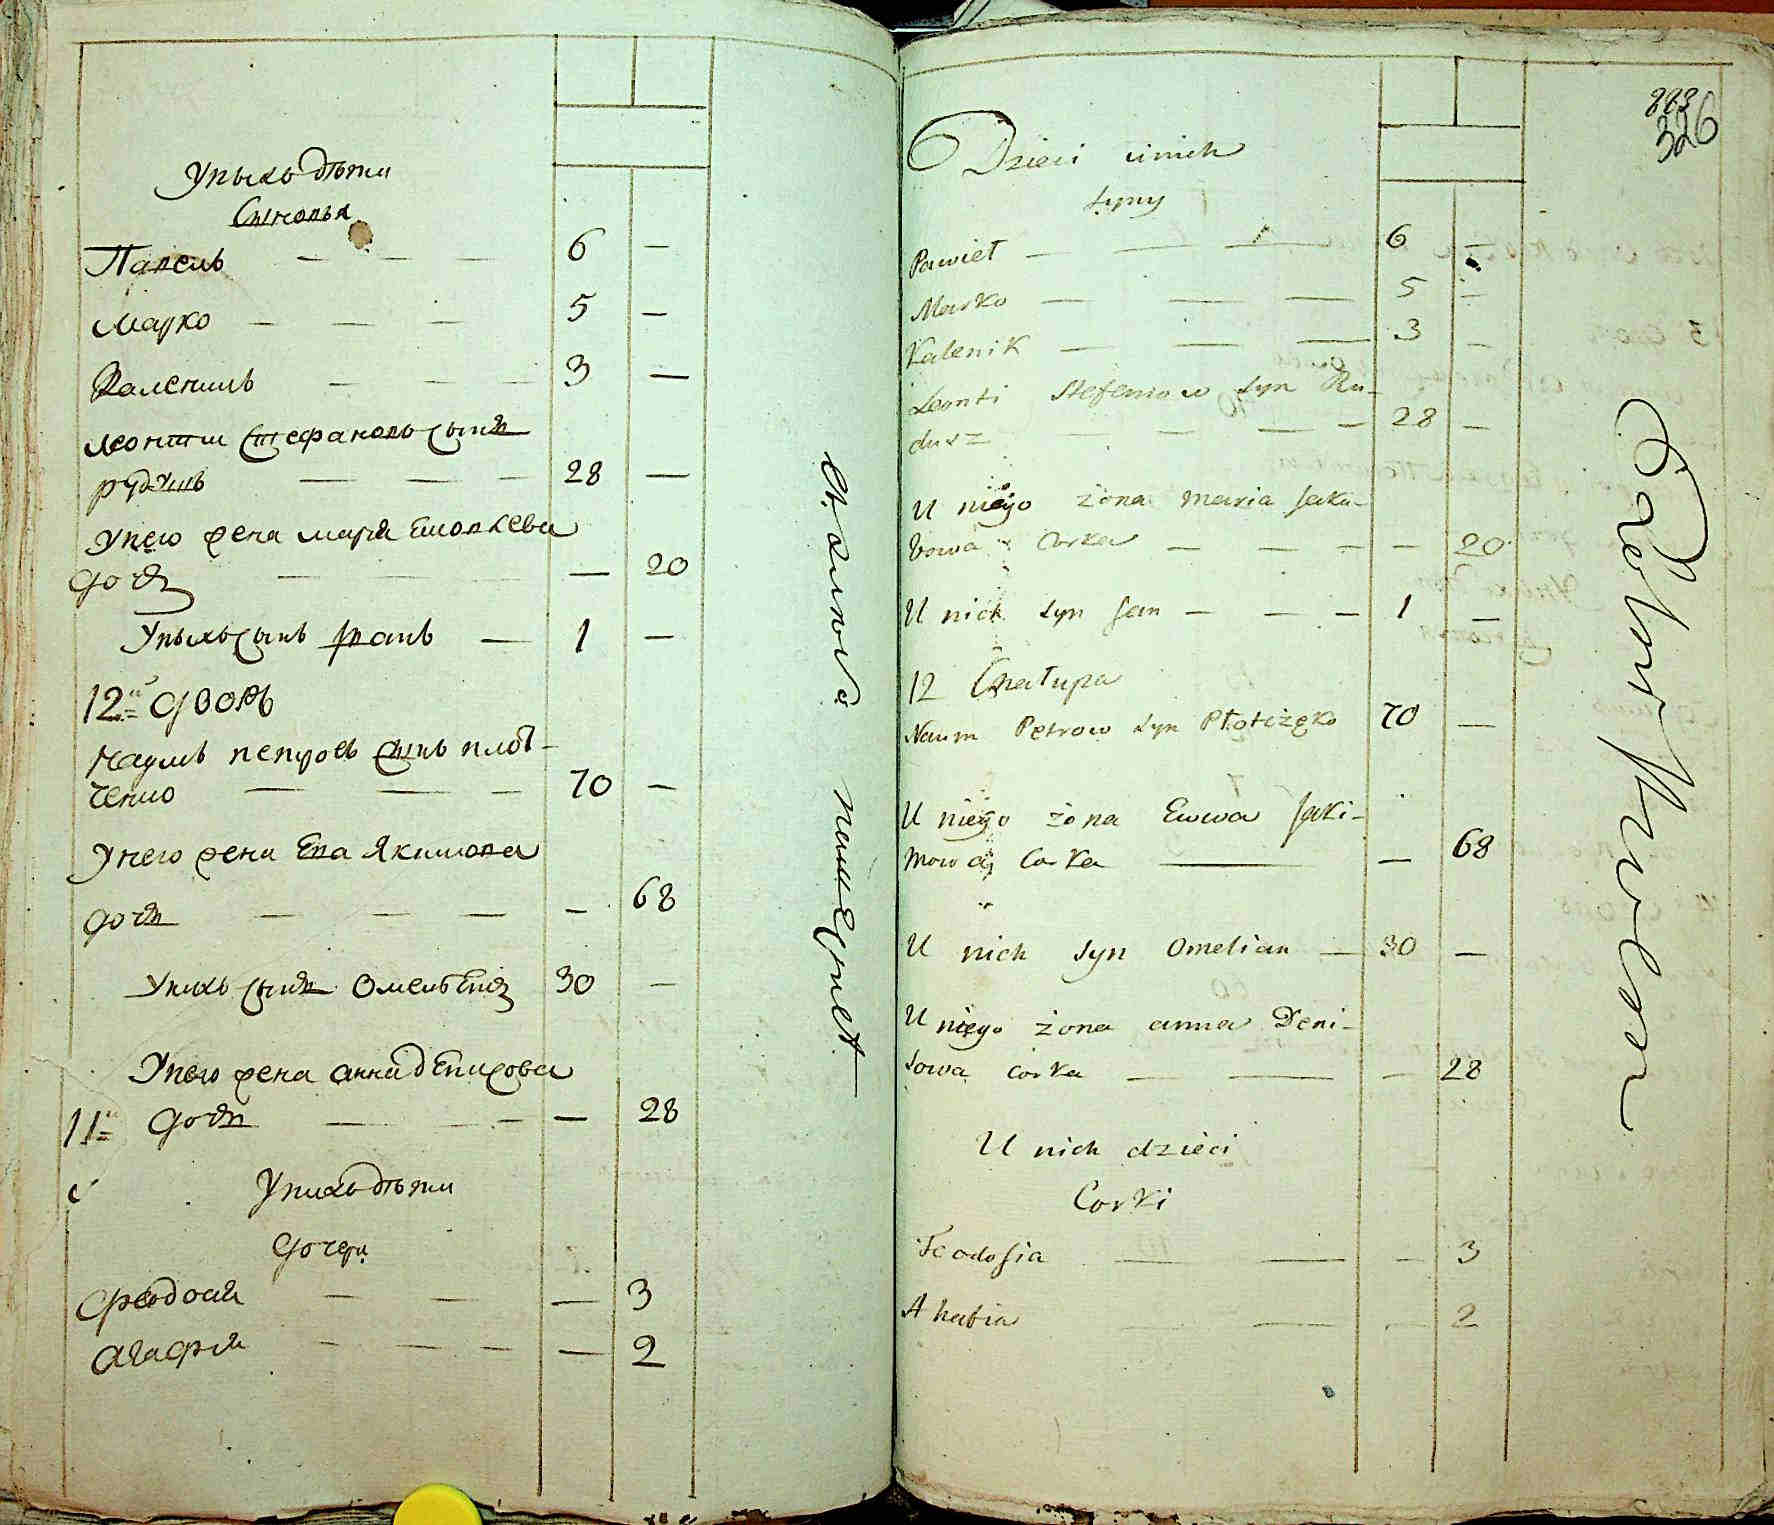 У нихъ дѣти
Сыновья
Павелъ — — — 6 —
Марко — — — 5 —
Каленикъ — — — 3 —
Леонтии Стефановъ сынъ
рудичъ — — — 28 —
У него жена Марія Яковлева
дочь — — — — 20
У нихъ сынъ Iванъ — 1 —
12й дворъ
Наумъ петровъ сынъ плот-
ченко — — — 70 —
У него жена Ева Якимова
дочь — — — — 68
У нихъ сынъ Омельянъ 30 —
У него жена анна денисова
11 дочь — — — 28
У нихъ дѣти
дочери
Феодосия — — — 3
Агафия — — — — 2
223
326
Dzieci u nich
syny
Pawieł — — — 6 —
Marko — — — 5 —
Kalenik — — — 3 —
Leonti Stefanow syn Ru-
dycz — — — — 28 —
U niego żona Maria Jaku-
bowa Corka — — — — 20
U nich syn Jan — — — 1 —
12 Chałupa
Naum Petrow syn Płotczęko 70 —
U niego żona Ewwa Jaki-
mowa Corka — — 68
U nich syn Omelian — 30 —
U niego żona anna Deni-
sowa corka — — — 28
U nich dzieci
Corki
Teodosia — — — 3
Ahafia — — — 2